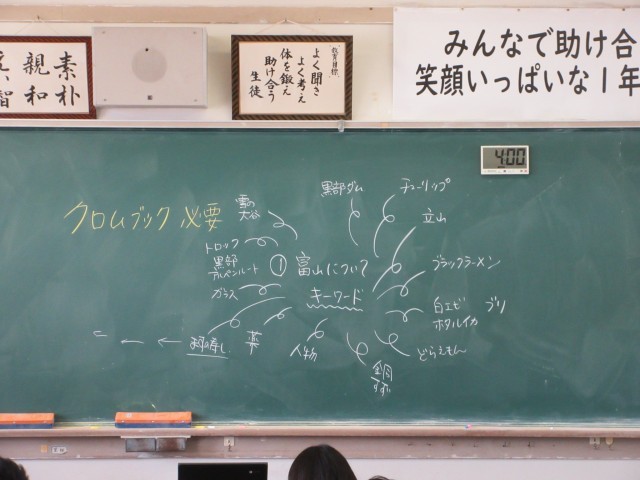 素朴
親和
教育目標
よく聞き
よく考え
体を鍛え
助け合う
生徒
みんなで助け合
笑顔いっぱいな1年
4:00
クロムブック必要
雪の
大谷
黒部ダム
チューリップ
立山
トロッコ
黒部
アルペンルート
① 富山について
キーワード
ブラックラーメン
ガラス
白エビ ブリ
ホタルイカ
ます寿し
薬
人物
銅
すず
どらえもん